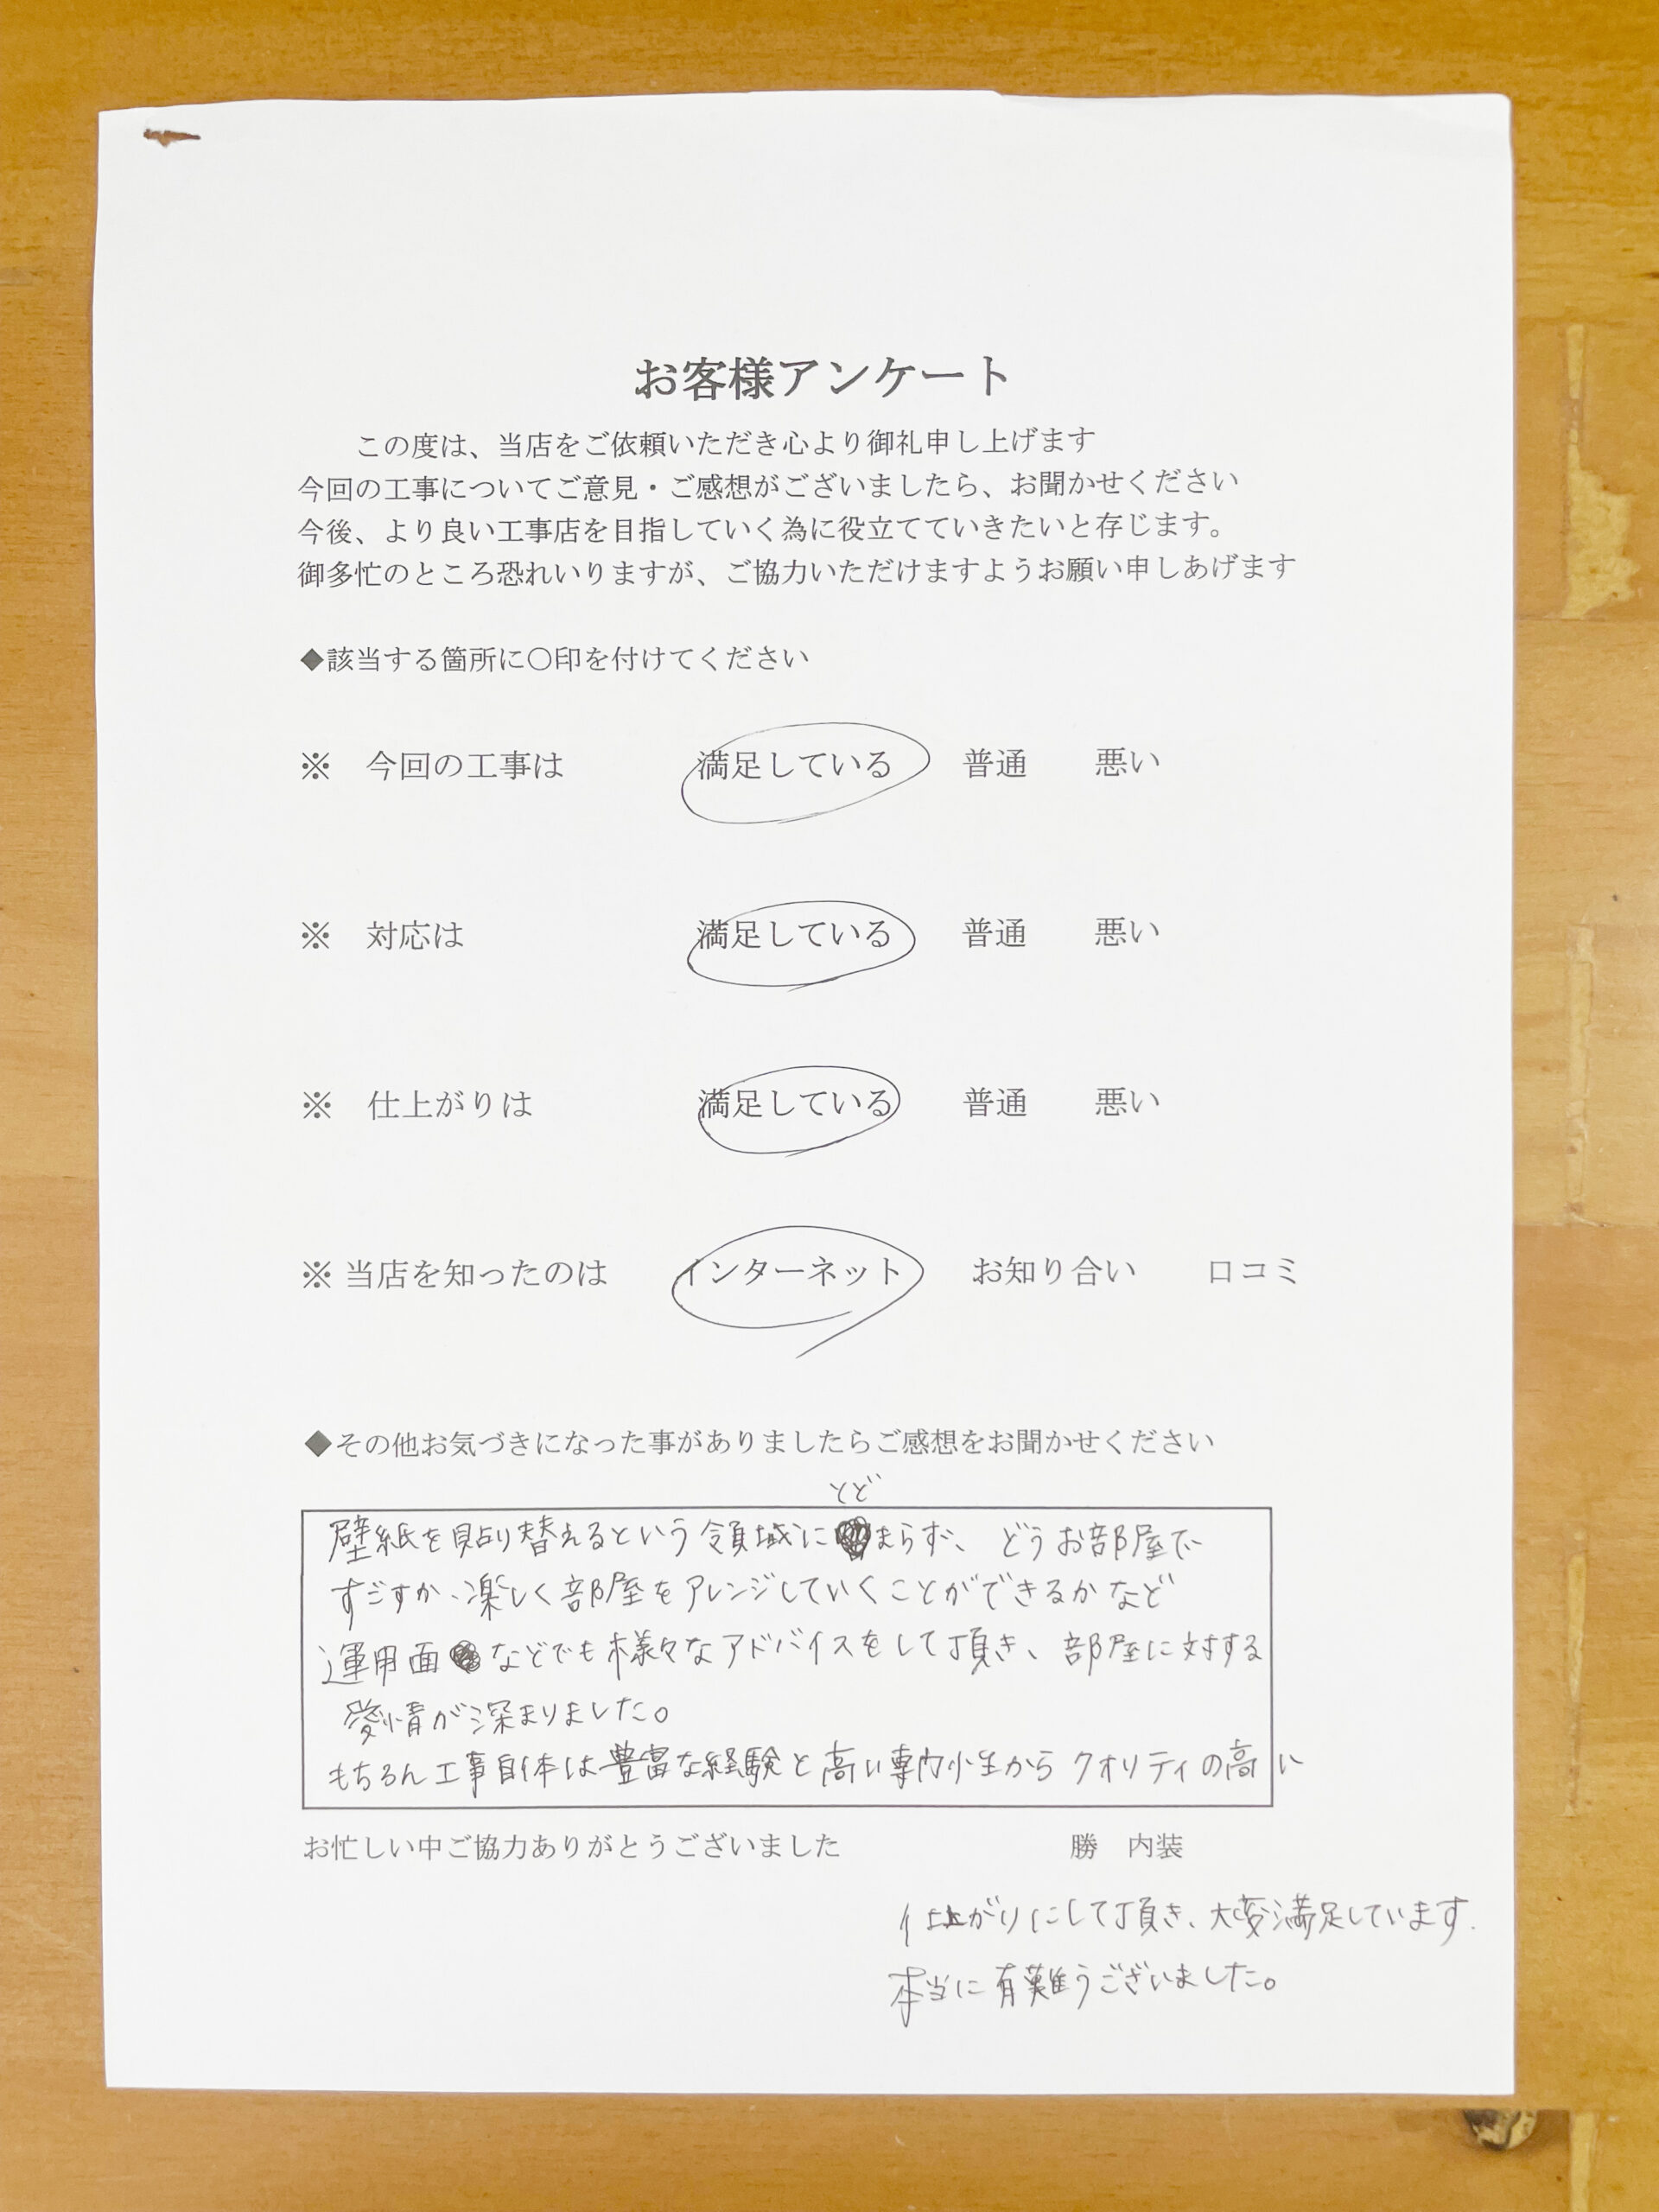 お客様アンケート
この度は、当店をご依頼いただき心より御礼申し上げます
今回の工事についてご意見・ご感想がございましたら、お聞かせください
今後、より良い工事店を目指していく為に役立てていきたいと存じます。
御多忙のところ恐れいりますが、ご協力いただけますようお願い申しあげます
◆該当する箇所に〇印を付けてください
※ 今回の工事は 満足している 普通 悪い
※ 対応は 満足している 普通 悪い
※ 仕上がりは 満足している 普通 悪い
※ 当店を知ったのは インターネット お知り合い 口コミ
◆その他お気づきになった事がありましたらご感想をお聞かせください
とど
壁紙を貼り替えるという領域にまらず、どうお部屋で
すごすか、楽しく部屋をアレンジしていくことができるかなど
運用面などでも様々なアドバイスをして頂き、部屋に対する
愛情が深まりました。
もちろん工事自体は豊富な経験と高い専門性からクオリティの高い
お忙しい中ご協力ありがとうございました 勝 内装
仕上がりにして頂き、大変満足しています.
本当に有難うございました。